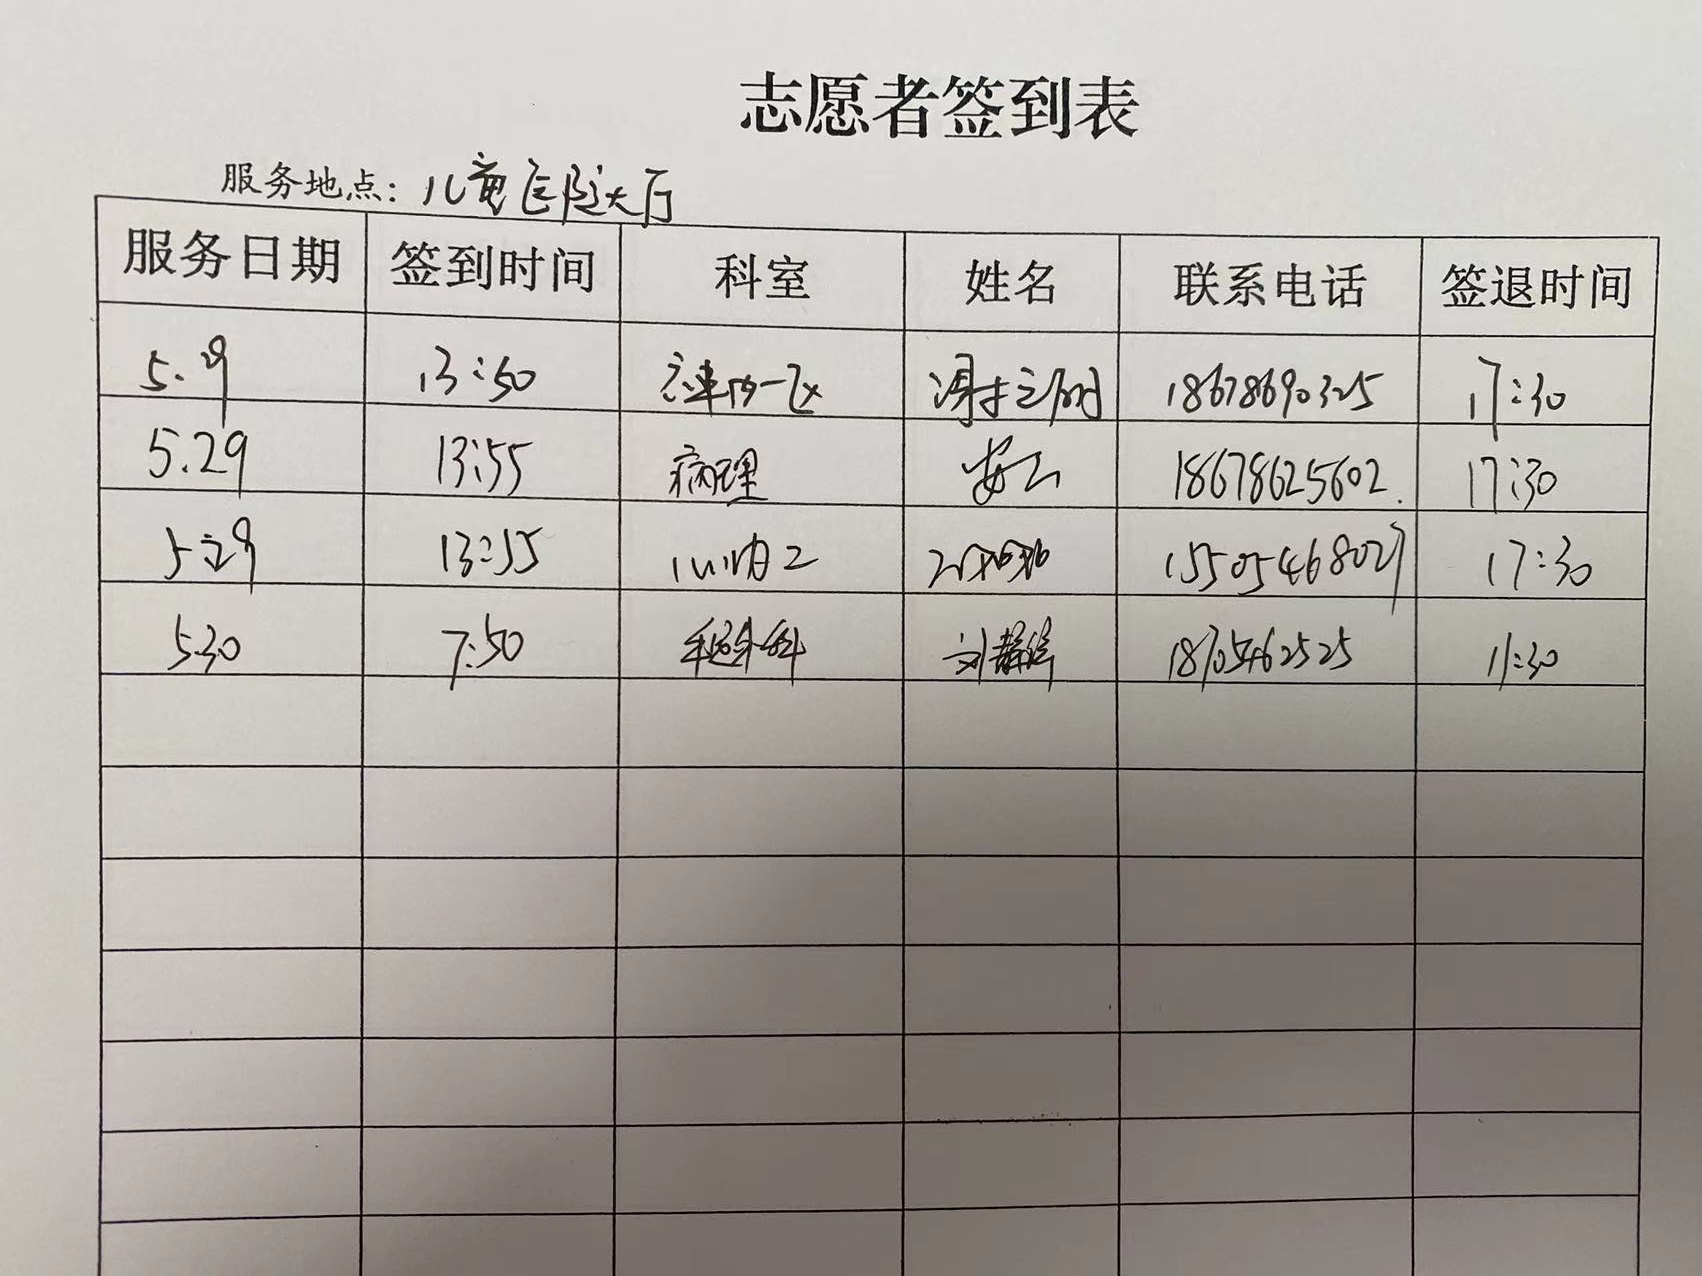 志愿者签到表
服务地点：儿童医院大厅
服务日期 签到时间 科室 姓名 联系电话 签退时间
5.29 13:50 18678690325 17:30
5.29 13:55 病理 18678625602. 17:30
5.29 13:55 15505468027 17:30
5.30 7:50 外科 刘 18705462525 11:30